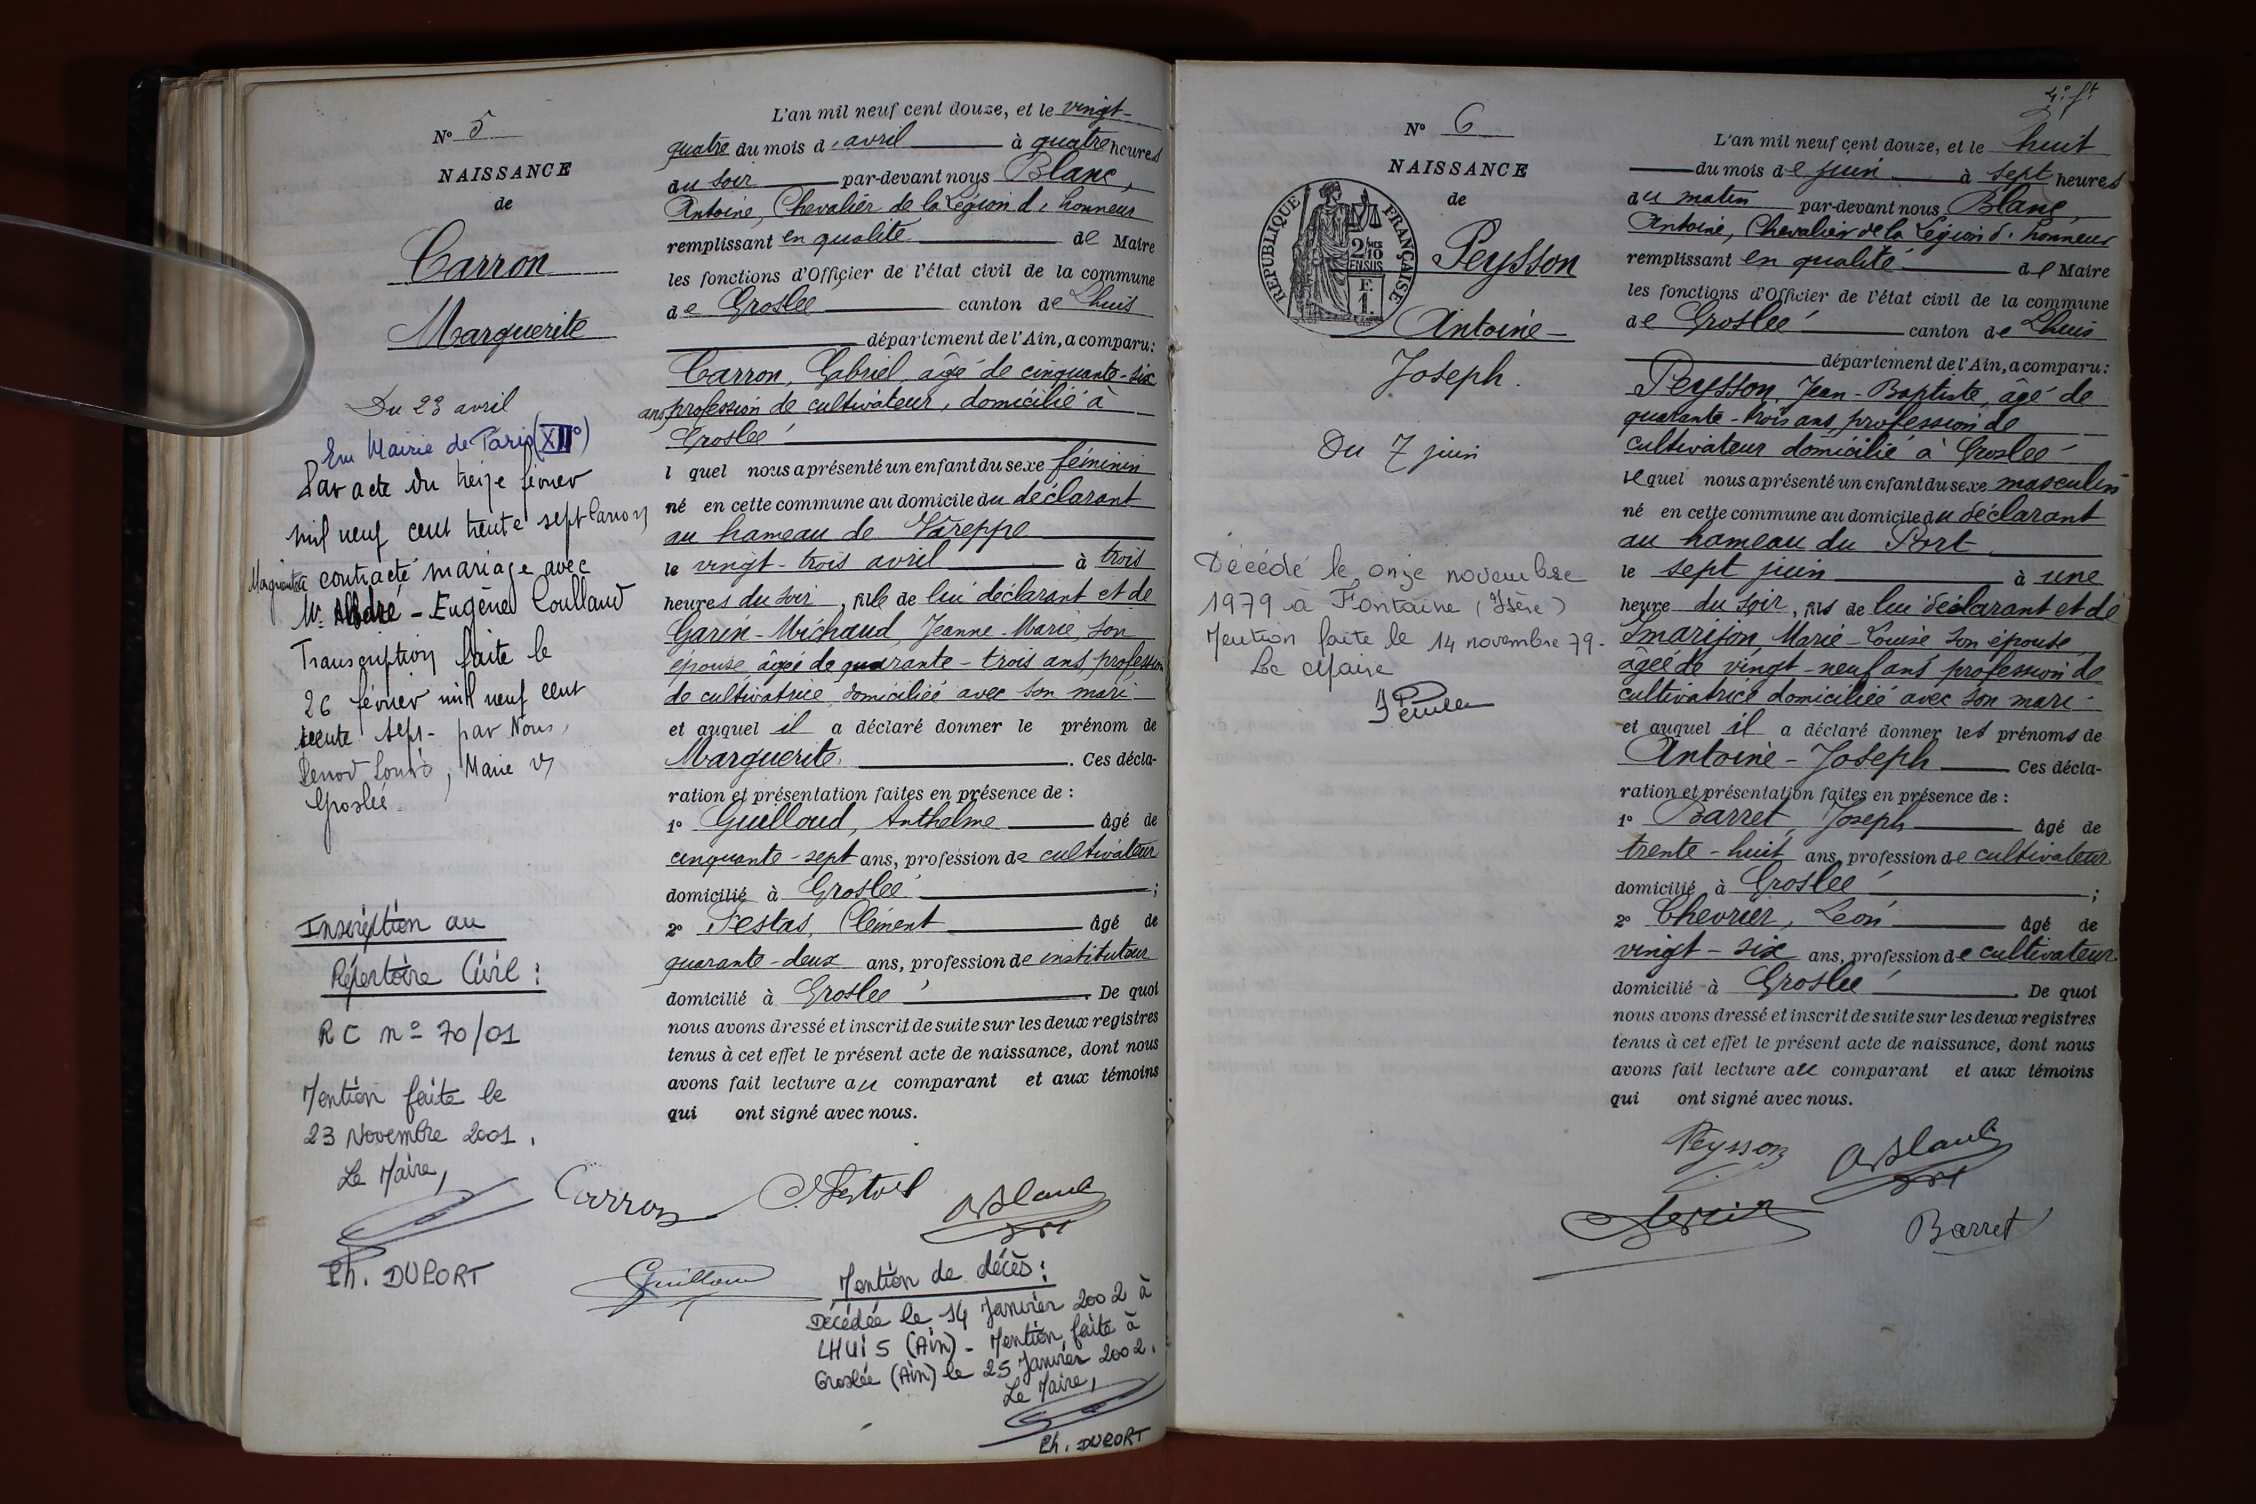 N° 5
NAISSANCE
de
Carron
Marguerite
Du 23 avril
En Mairie de Paris (XII°)
Par acte du treize février
mil neuf cent trente sept Carron
Marguerite a contracté mariage avec
Mr. André - Eugène Coulland
Transcription faite le
26 février mil neuf cent
trente sept - par Nous,
Louis, Maire de
Groslée.
Inscription au
Répertoire Civil :
RC n° 70/01
Mention faite le
23 Novembre 2001.
Le Maire,
Ph. DUPORT
L'an mil neuf cent douze, et le vingt-
quatre du mois d'avril à quatre heures
du soir par-devant nous Blanc,
Antoine, Chevalier de la Légion d'honneur
remplissant en qualité de Maire
les fonctions d'Officier de l'état civil de la commune
de Groslée canton de Lhuis
département de l'Ain, a comparu :
Carron, Gabriel, âgé de cinquante-six
ans profession de cultivateur, domicilié à
Groslée
l quel nous a présenté un enfant du sexe féminin
né en cette commune au domicile du déclarant
au hameau de Vareppe
le vingt-trois avril à trois
heures du soir, fille de lui déclarant et de
Garin-Michaud, Jeanne-Marie, son
épouse âgée de quarante-trois ans, profession
de cultivatrice domiciliée avec son mari -
et auquel il a déclaré donner le prénom de
Marguerite. Ces décla-
ration et présentation faites en présence de :
1° Guilloud, Anthelme âgé de
cinquante-sept ans, profession de cultivateur
domicilié à Groslée ;
2° Festas, Clément âgé de
quarante-deux ans, profession de instituteur
domicilié à Groslée. De quoi
nous avons dressé et inscrit de suite sur les deux registres
tenus à cet effet le présent acte de naissance, dont nous
avons fait lecture au comparant et aux témoins
qui ont signé avec nous.
Carron C. Festas A Blanc
Guilloud
Mention de décès :
Décédée le 14 Janvier 2002 à
LHUIS (Ain) - Mention faite à
Groslée (Ain) le 25 Janvier 2002.
Le Maire,
Ph. DUPORT
4e ft
N° 6
NAISSANCE
de
RÉPUBLIQUE FRANÇAISE
2/10
EN SUS
F.
1.
Peysson
Antoine -
Joseph.
Du 7 juin
Décédé le onze novembre
1979 à Fontaine (Isère)
Mention faite le 14 novembre 79.
Le Maire
L'an mil neuf cent douze, et le huit
du mois de juin à sept heures
du matin par-devant nous Blanc,
Antoine, Chevalier de la Légion d'honneur
remplissant en qualité de Maire
les fonctions d'Officier de l'état civil de la commune
de Groslée canton de Lhuis
département de l'Ain, a comparu :
Peysson, Jean-Baptiste, âgé de
quarante-trois ans, profession de
cultivateur domicilié à Groslée
lequel nous a présenté un enfant du sexe masculin
né en cette commune au domicile du déclarant
au hameau du Port
le sept juin à une
heure du soir, fils de lui déclarant et de
Emarijon, Marie-Louise son épouse
âgée de vingt-neuf ans profession de
cultivatrice domiciliée avec son mari -
et auquel il a déclaré donner les prénoms de
Antoine-Joseph Ces décla-
ration et présentation faites en présence de :
1° Barret, Joseph âgé de
trente-huit ans, profession de cultivateur
domicilié à Groslée ;
2° Chevrier, Léon âgé de
vingt-six ans, profession de cultivateur
domicilié à Groslée. De quoi
nous avons dressé et inscrit de suite sur les deux registres
tenus à cet effet le présent acte de naissance, dont nous
avons fait lecture au comparant et aux témoins
qui ont signé avec nous.
Peysson A Blanc
Barret